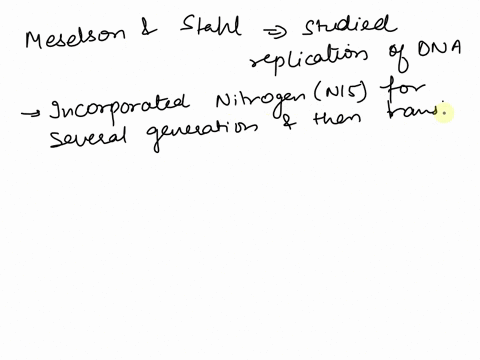 Meselson & Stahl ⇒ Studied
replication of DNA
→ Incorporated Nitrogen (N15) for
several generation & then trans